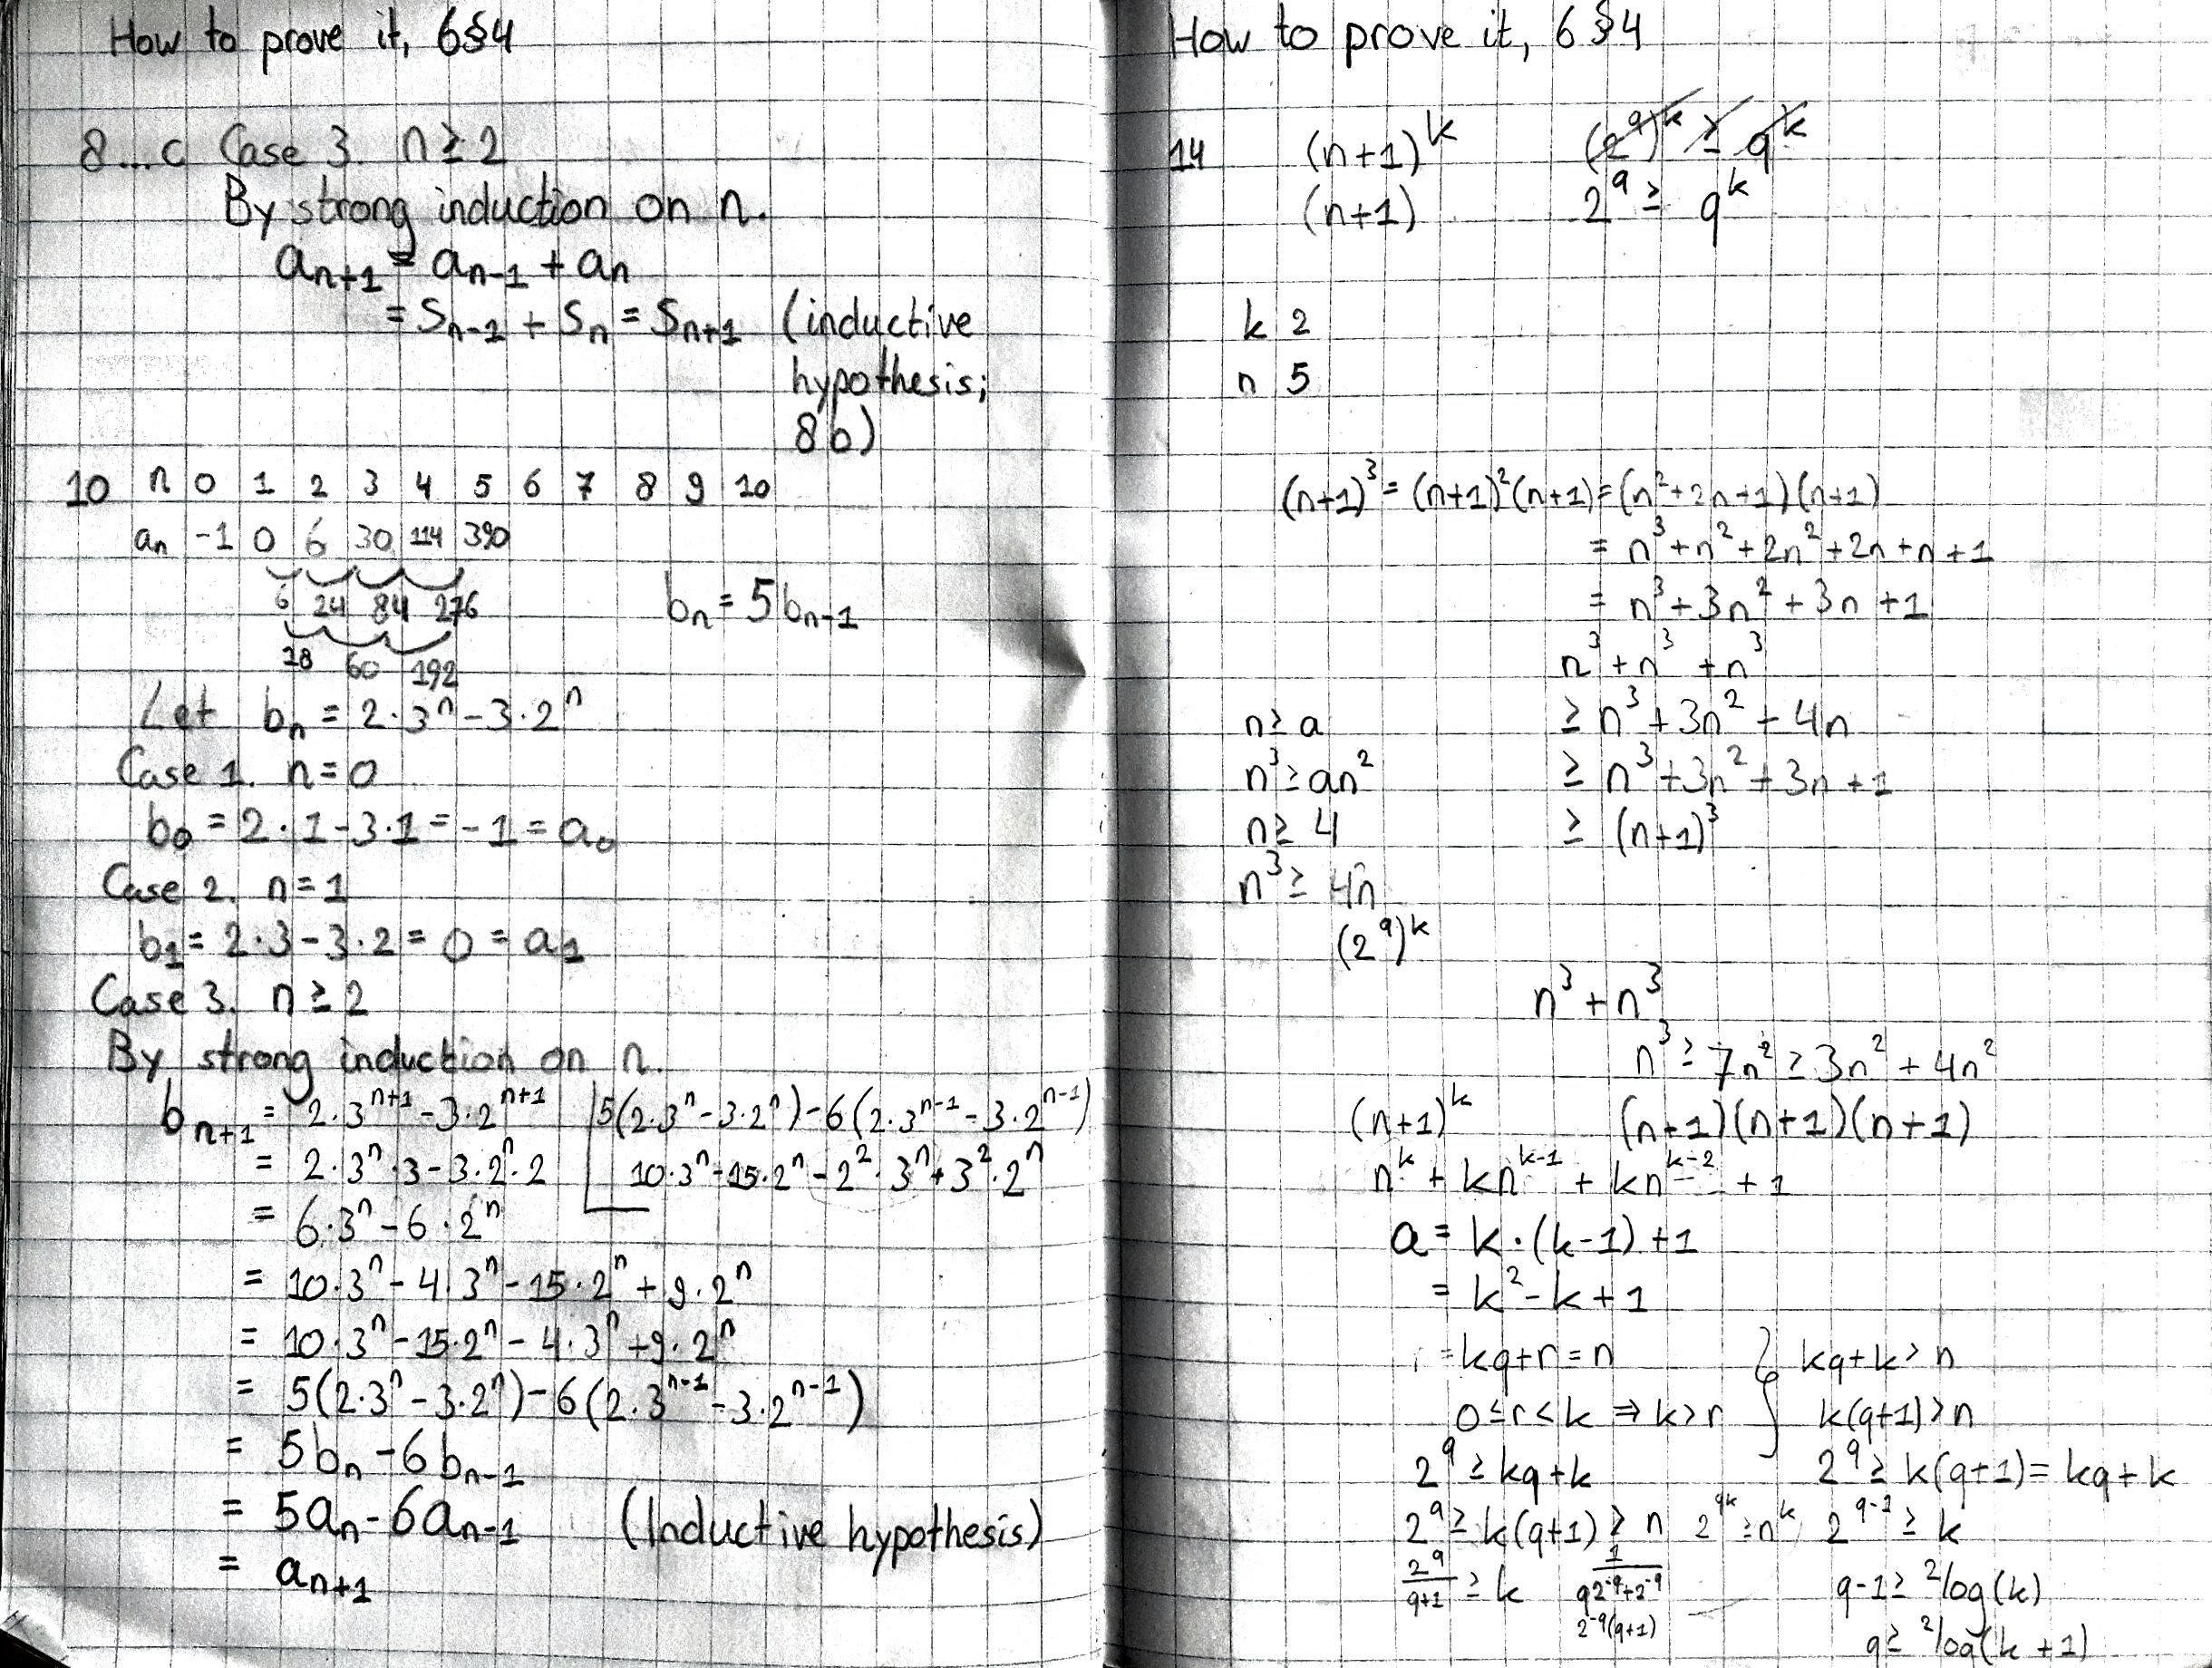 How to prove it, 6§4
8...c Case 3. n ≥ 2
By strong induction on n.
aₙ₊₁ = aₙ₋₁ + aₙ
= Sₙ₋₁ + Sₙ = Sₙ₊₁ (inductive
hypothesis;
8b)
10 n 0 1 2 3 4 5 6 7 8 9 10
aₙ -1 0 6 30 114 390
6 24 84 276
bₙ = 5bₙ₋₁
18 60 192
Let bₙ = 2·3ⁿ - 3·2ⁿ
Case 1. n = 0
b₀ = 2·1 - 3·1 = -1 = a₀
Case 2. n = 1
b₁ = 2·3 - 3·2 = 0 = a₁
Case 3. n ≥ 2
By strong induction on n.
bₙ₊₁ = 2·3ⁿ⁺¹ - 3·2ⁿ⁺¹ | 5(2·3ⁿ - 3·2ⁿ) - 6(2·3ⁿ⁻¹ - 3·2ⁿ⁻¹)
= 2·3ⁿ·3 - 3·2ⁿ·2 | 10·3ⁿ - 15·2ⁿ - 2²·3ⁿ + 3²·2ⁿ
= 6·3ⁿ - 6·2ⁿ
= 10·3ⁿ - 4·3ⁿ - 15·2ⁿ + 9·2ⁿ
= 10·3ⁿ - 15·2ⁿ - 4·3ⁿ + 9·2ⁿ
= 5(2·3ⁿ - 3·2ⁿ) - 6(2·3ⁿ⁻¹ - 3·2ⁿ⁻¹)
= 5bₙ - 6bₙ₋₁
= 5aₙ - 6aₙ₋₁ (Inductive hypothesis)
= aₙ₊₁
How to prove it, 6§4
14 (n+1)ᵏ (2^q)ᵏ ≥ qᵏ
(n+1) 2^q ≥ qᵏ
k 2
n 5
(n+1)³ = (n+1)²(n+1) = (n²+2n+1)(n+1)
= n³ + n² + 2n² + 2n + n + 1
= n³ + 3n² + 3n + 1
n³ + n³ + n³
n ≥ a ≥ n³ + 3n² + 4n
n³ ≥ an² ≥ n³ + 3n² + 3n + 1
n ≥ 4 ≥ (n+1)³
n³ ≥ 4n
(2^q)ᵏ
n³ + n³
n³ ≥ 7n² ≥ 3n² + 4n²
(n+1)ᵏ (n+1)(n+1)(n+1)
nᵏ + knᵏ⁻¹ + knᵏ⁻² + 1
a = k·(k-1) + 1
= k² - k + 1
= kq + r = n } kq + k > n
0 ≤ r < k ⇒ k > r k(q+1) > n
2^q ≥ kq + k 2^q ≥ k(q+1) = kq + k
2^q ≥ k(q+1) ≥ n 2^qk ≥ nᵏ 2^q-1 ≥ k
2^q/(q+1) ≥ k 1/(q2^-q + 2^-q) q-1 ≥ ²log(k)
2^-q(q+1) q ≥ ²log(k+1)